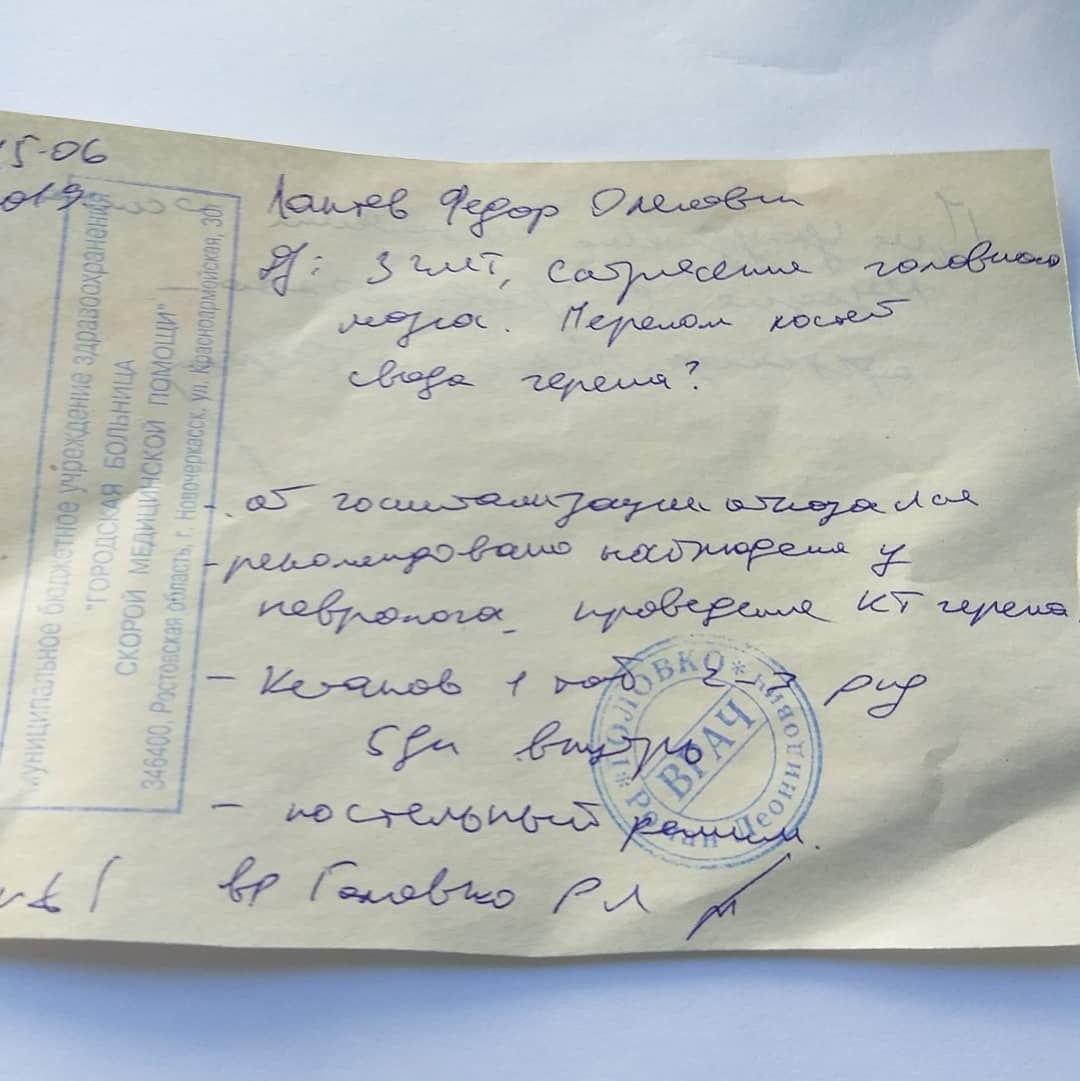 15-06
2019
Лаптев Федор Олегович
Д: ЗЧМТ, сотрясение головного
мозга. Перелом костей
свода черепа?
- от госпитализации отказался
- рекомендовано наблюдение у
невролога, проведение КТ черепа.
- Кетанов 1 таб 2-3 р/д
5 дн внутрь
- постельный режим.
вр Головко РЛ
муниципальное бюджетное учреждение здравоохранения
"ГОРОДСКАЯ БОЛЬНИЦА
СКОРОЙ МЕДИЦИНСКОЙ ПОМОЩИ"
346400, Ростовская область, г. Новочеркасск, ул. Красноармейская, 30
*ГОЛОВКО* Роман Леонидович
ВРАЧ